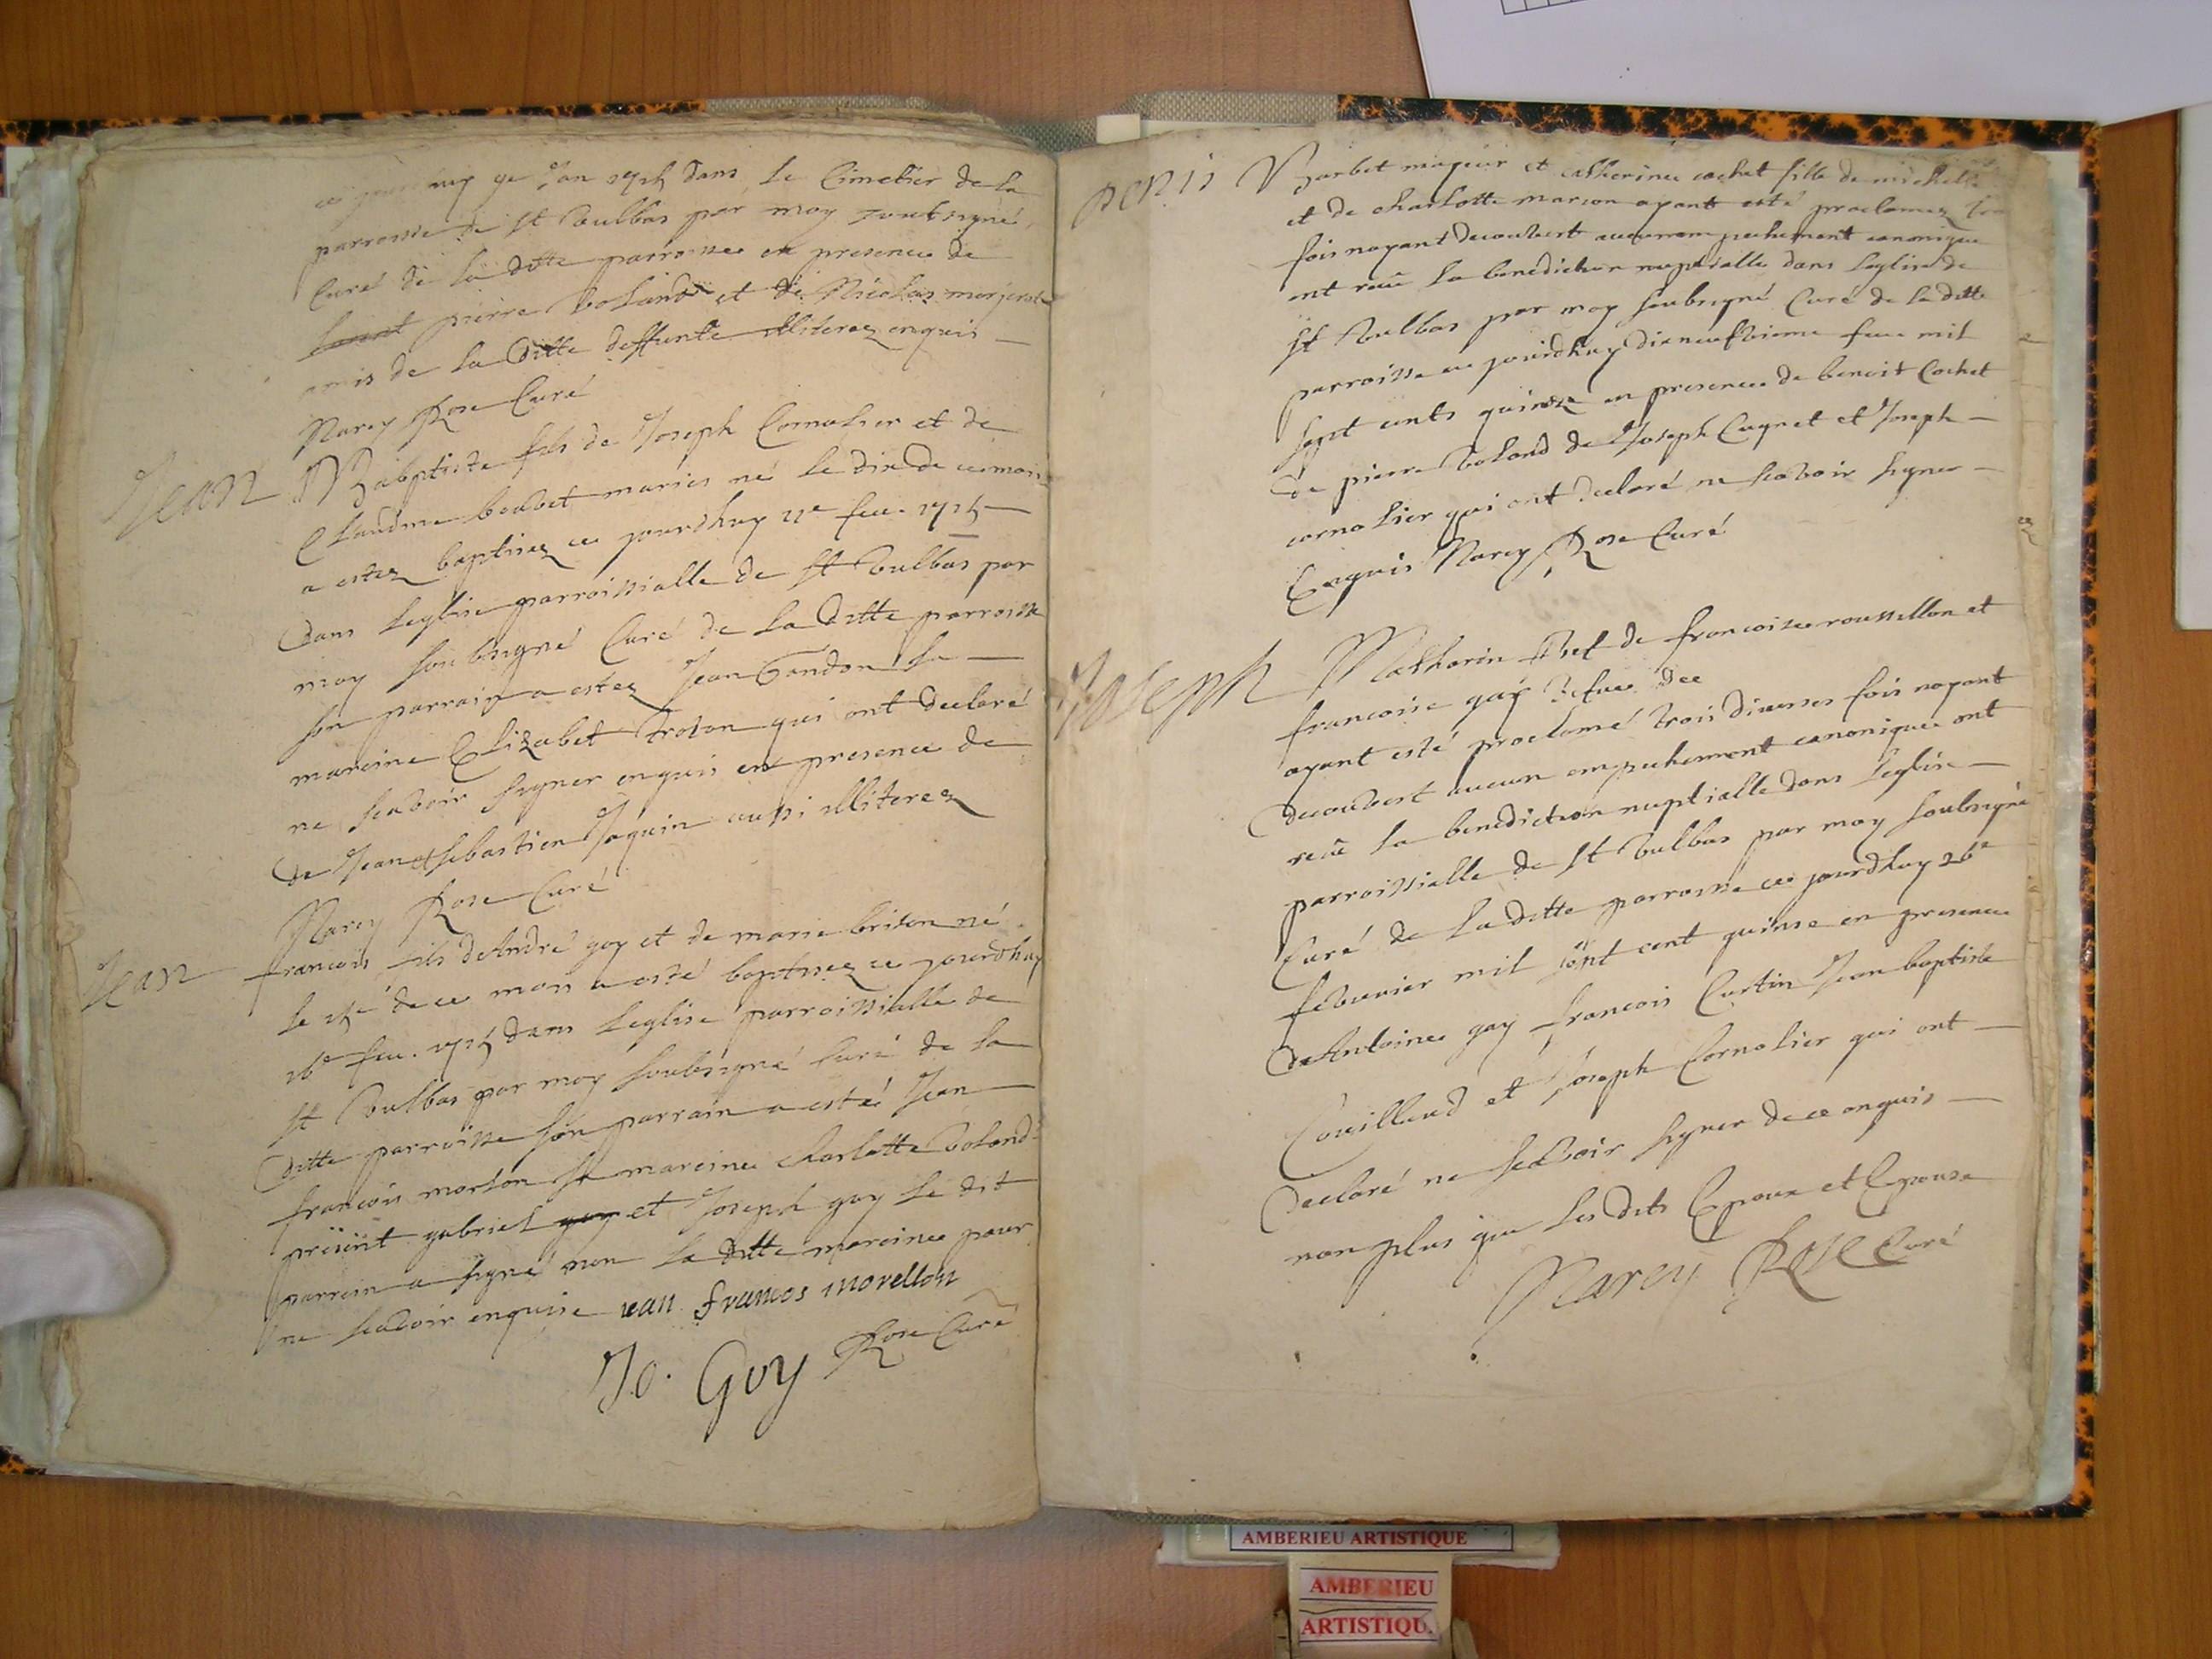 ge Jan 1715 dans le Cimetier de la
parroisse de St Vulbas par moy soubsigné
Curé de la ditte parroisse en presence de
pierre Voland et de Nicolas
amis de la Ditte deffunte illiterez enquis
Marcy Rose Curé
Jean Babptiste fils de Joseph Cornolier et de
Claudine boubet maries né le dix de ce mois
a estez baptisez ce jourdhuy 11e feu. 1715
Dans leglise parroissialle de St Vulbas par
moy soubsigné Curé de la ditte parroisse
son parrain a estez Jean Gandon sa
mareine Elizabet troton qui ont declaré
ne scavoir signer enquis en presence de
de Jean et sebastien Joquin aussi illiterez
Marcy Rose Curé
Jean francois fils de André goy et de marie brison né
le 15e de ce mois a esté baptisez ce jourdhuy
16e feu. 1715 dans leglise parroissialle de
St Vulbas par moy soubsigné Curé de la
ditte parroisse son parrain a esté Jean
francois morlon sa mareine charlotte Voland
présent gabriel goy et Joseph goy le dit
parrein a signé non la ditte mareine pour
ne scavoir enquise ean francos morellon
Jo. Goy Rose Curé
Denis barbet majeur et catherine cochet fille de michelle
et de charlotte marion ayant esté proclamez
fois nayant decouvert aucun empechement canonique
ont receu la benediction nuptialle dans leglise de
St Vulbas par moy soubsigné Curé de la ditte
parroisse ce jourdhuy dixneufvieme feu. mil
sept cents quinze en presence de benoit Cochet
de pierre Voland de Joseph Cugnet et Joseph
cornolier qui ont declaré ne scavoir signer
Enquis Marcy Rose Curé
Joseph Matharin de francoise roussillon et
francoise gay
ayant esté proclamé trois diverses fois nayant
decouvert aucun empechement canonique ont
receu la benediction nuptialle dans leglise
parroissialle de St Vulbas par moy soubsigné
Curé de la ditte parroisse ce jourdhuy 26e
februrier mil sept cent quinse en presence
de Antoine gay francois Curtin Jean baptiste
Couilloud et Joseph Cornolier qui ont
declaré ne scavoir signer de ce enquis
non plus que les dits Epoux et Epouse
Marcy Rose Curé
AMBERIEU ARTISTIQUE
AMBERIEU
ARTISTIQU